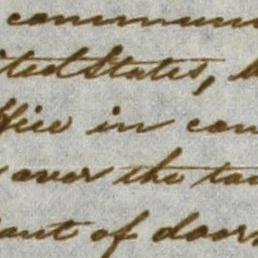 commun
ited States,
ffice in con
over the ta
out of doors